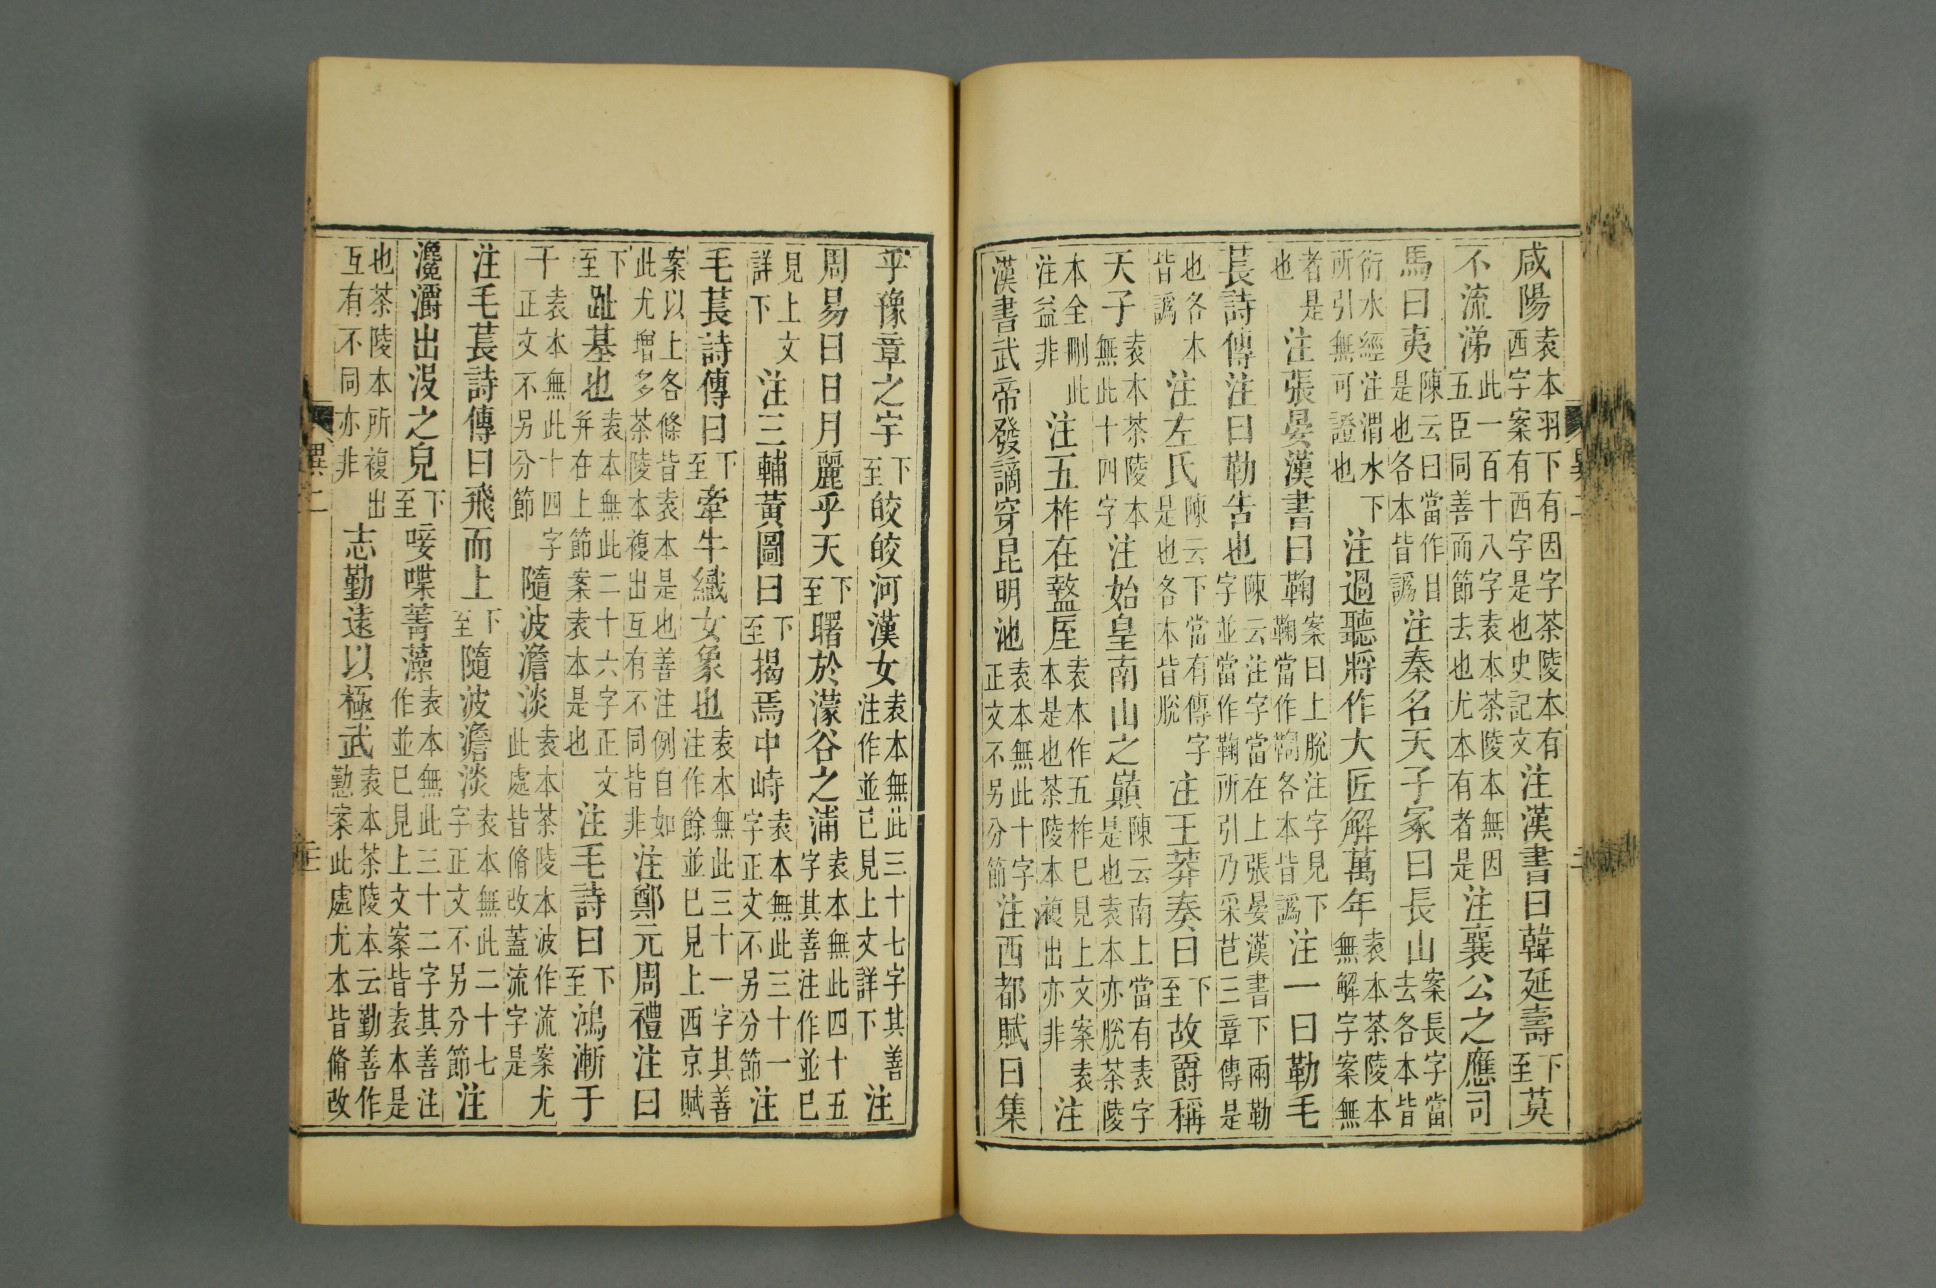 咸陽袁本羽下有因字茶陵本有西字案有西字是也史記文注漢書曰韓延壽下至莫
不流涕此一百十八字袁本茶陵本無因五臣同善而節去也尤本有者是注襄公之應司
馬曰夷陳云曰當作目是也各本皆譌注秦名天子冢曰長山案長字當去各本皆
衍水經注渭水下所引無可證也注過聽將作大匠解萬年袁本茶陵本無解字案無
者是也注張晏漢書曰鞠案曰上脫注字見下鞠當作鞫各本皆譌注一曰勒毛
萇詩傳注曰勒告也陳云注字當在上張晏漢書下兩勒字並當作鞫所引乃采芑三章傳是
也各本皆譌注左氏陳云下當有傳字是也各本皆脫注王莽奏曰下至故爵稱
天子袁本茶陵本無此十四字注始皇南山之巔陳云南上當有表字是也袁本亦脫茶陵
本全刪此注益非注五柞在盩厔袁本作五柞已見上文案袁本是也茶陵本複出亦非注
漢書武帝發謫穿昆明池袁本無此十字正文不另分節注西都賦曰集
乎豫章之宇下至皎皎河漢女袁本無此三十七字其善注作並已見上文詳下注
周易曰日月麗乎天下至曙於濛谷之浦袁本無此四十五字其善注作並已
見上文詳下注三輔黃圖曰下至揭焉中峙袁本無此三十一字正文不另分節注
毛萇詩傳曰下至牽牛織女象也袁本無此三十一字其善注作餘並已見上西京賦
案以上各條皆袁本是也善注例自如此尤增多茶陵本複出互有不同皆非注鄭元周禮注曰
下至趾基也袁本無此二十六字正文并在上節案袁本是也注毛詩曰下至鴻漸于
干袁本無此十四字正文不另分節隨波澹淡袁本茶陵本波作流案尤此處皆脩改蓋流字是
注毛萇詩傳曰飛而上下至隨波澹淡袁本無此二十七字正文不另分節注
瀺灂出沒之皃下至唼喋菁藻袁本無此三十二字其善注作並已見上文案皆袁本是
也茶陵本所複出互有不同亦非志勤遠以極武袁本茶陵本云勤善作懃案此處尤本皆脩改
異二
三